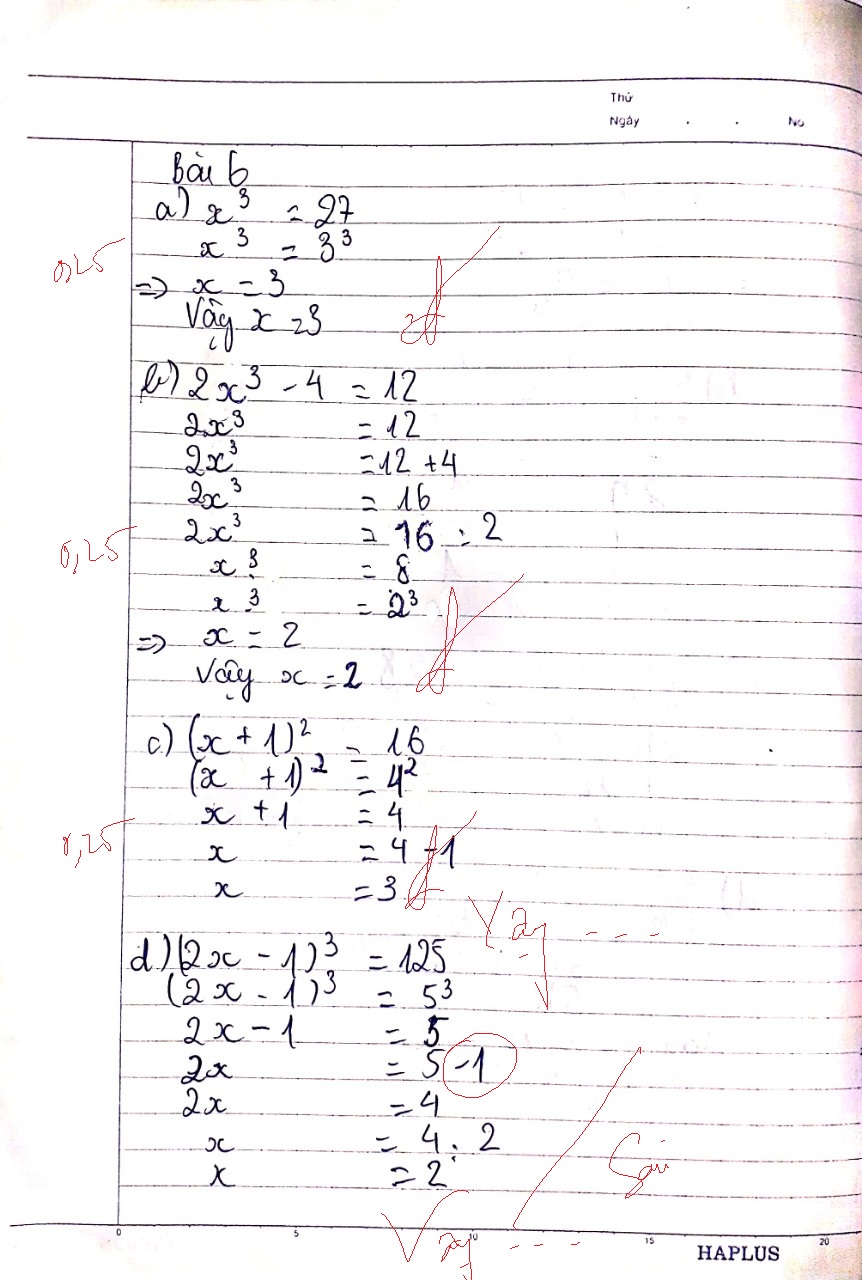 Thứ
Ngày . . No
Bài 6
a) x³ = 27
x³ = 3³
0,25
=> x = 3
Đ
Vậy x = 3
b) 2x³ - 4 = 12
2x³ = 12
2x³ = 12 + 4
2x³ = 16
2x³ = 16 : 2
0,25
x³ = 8
x³ = 2³
=> x = 2
Đ
Vậy x = 2
c) (x + 1)² = 16
(x + 1)² = 4²
x + 1 = 4
0,25
x = 4 - 1
x = 3
Đ
Vậy ---
d) (2x - 1)³ = 125
(2x - 1)³ = 5³
2x - 1 = 5
2x = 5 - 1
2x = 4
x = 4 : 2
Sai
x = 2
Vậy ----
0 5 10 15 20
HAPLUS